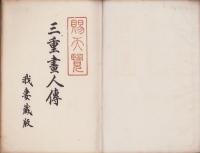 賜天覧
三重畫人傳
我妻蔵版